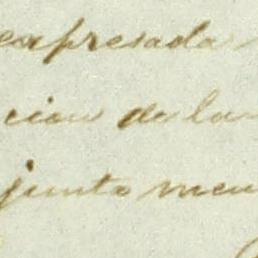 expresada
cion de la
junta men